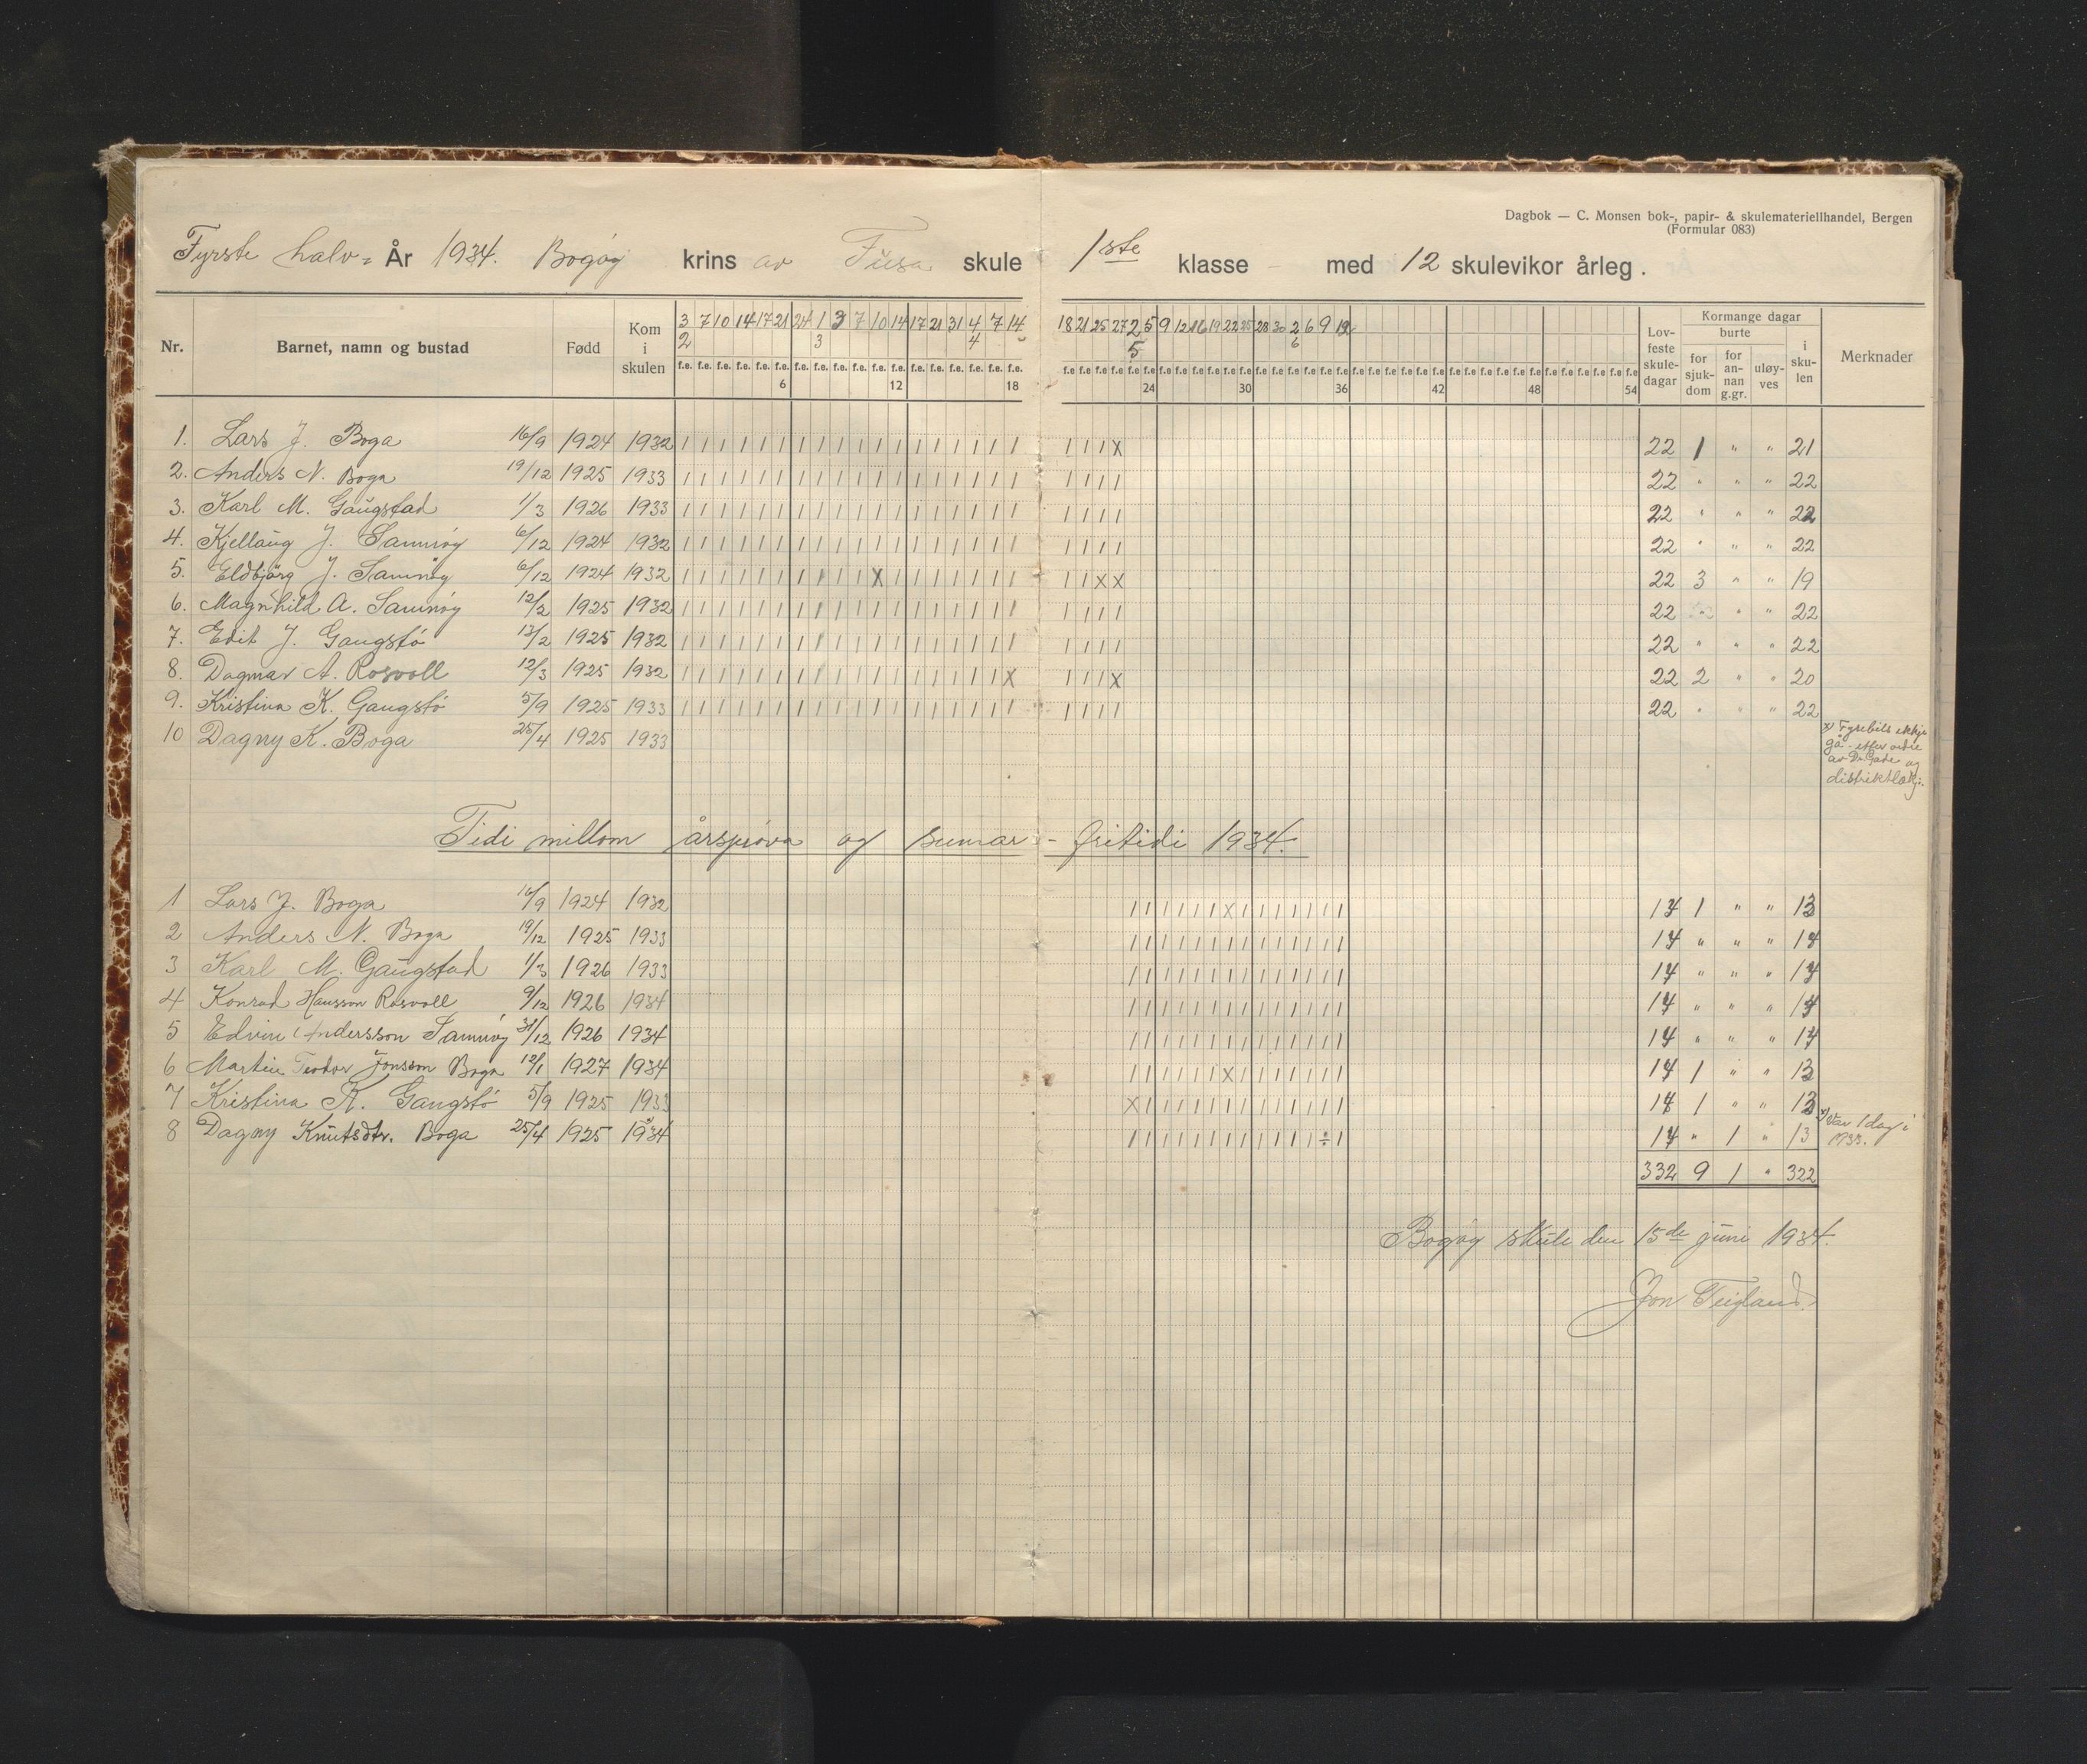 Dagbok — C. Monsen bok-, papir- & skulemateriellhandel, Bergen
(Formular 083)
Fyrste halv- År 1934. Bogøy krins av Fusa skule 1ste klasse - med 12 skulevikor årleg.
Nr. Barnet, namn og bustad Fødd Kom i skulen
3 7 10 14 17 21 24 1 3 7 10 14 17 21 31 4 7 14 18 21 25 27 2 5 9 12 16 19 22 25 28 30 2 6 9 12
2 3 4 5 6
f.e. f.e. f.e. f.e. f.e. f.e. f.e. f.e. f.e. f.e. f.e. f.e. f.e. f.e. f.e. f.e. f.e. f.e.
6 12 18 24 30 36 42 48 54
Lovfeste skuledagar Kormange dagar burte for sjukdom for annan g.gr. uløyves i skulen Merknader
1. Lars J. Boga 16/9 1924 1932 | | | | | | | | | | | | | | | | | | | | | x 22 1 " " 21
2. Anders N. Boga 19/12 1925 1933 | | | | | | | | | | | | | | | | | | | | | | 22 " " " 22
3. Karl M. Gaugstad 1/3 1926 1933 | | | | | | | | | | | | | | | | | | | | | | 22 " " " 22
4. Kjellaug J. Samnøy 6/12 1924 1932 | | | | | | | | | | | | | | | | | | | | | | 22 " " " 22
5. Eldbjørg J. Samnøy 6/12 1924 1932 | | | | | | | | | | x | | | | | | | | | x x 22 3 " " 19
6. Magnhild A. Samnøy 12/2 1925 1932 | | | | | | | | | | | | | | | | | | | | | | 22 " " " 22
7. Edit J. Gangstø 13/2 1925 1932 | | | | | | | | | | | | | | | | | | | | | | 22 " " " 22
8. Dagmar A. Rosvoll 12/3 1925 1932 | | | | | | | | | | | | | | | | | x | | | x 22 2 " " 20
9. Kristina K. Gangstø 5/9 1925 1933 | | | | | | | | | | | | | | | | | | | | | | 22 " " " 22
10 Dagny K. Boga 25/4 1925 1933
x) Fyrebils ikkje
gå - etter ordre
av Dr. Gade og
distriktlækj.
Tidi millom årsprøva og sumar - fritidi 1934.
1 Lars J. Boga 16/9 1924 1932 | | | | | | x | | | | | | | 14 1 " " 13
2 Anders N. Boga 19/12 1925 1933 | | | | | | | | | | | | | | 14 " " " 14
3 Karl M. Gaugstad 1/3 1926 1933 | | | | | | | | | | | | | | 14 " " " 14
4 Konrad Hansson Rosvoll 9/12 1926 1934 | | | | | | | | | | | | | | 14 " " " 14
5 Edvin Andersson Samnøy 31/12 1926 1934 | | | | | | | | | | | | | | 14 " " " 14
6 Martin Teodor Jonsson Boga 12/1 1927 1934 | | | | | | x | | | | | | | 14 1 " " 13
7 Kristina K. Gangstø 5/9 1925 1933 x | | | | | | | | | | | | | 14 1 " " 13
8 Dagny Knutsdtr. Boga 25/4 1925 1934 | | | | | | | | | | | | ÷ | 14 " 1 " 13
x) Var 1 dag i
1933.
332 9 1 " 322
Bogøy skule den 15de juni 1934.
Jon Teigland.